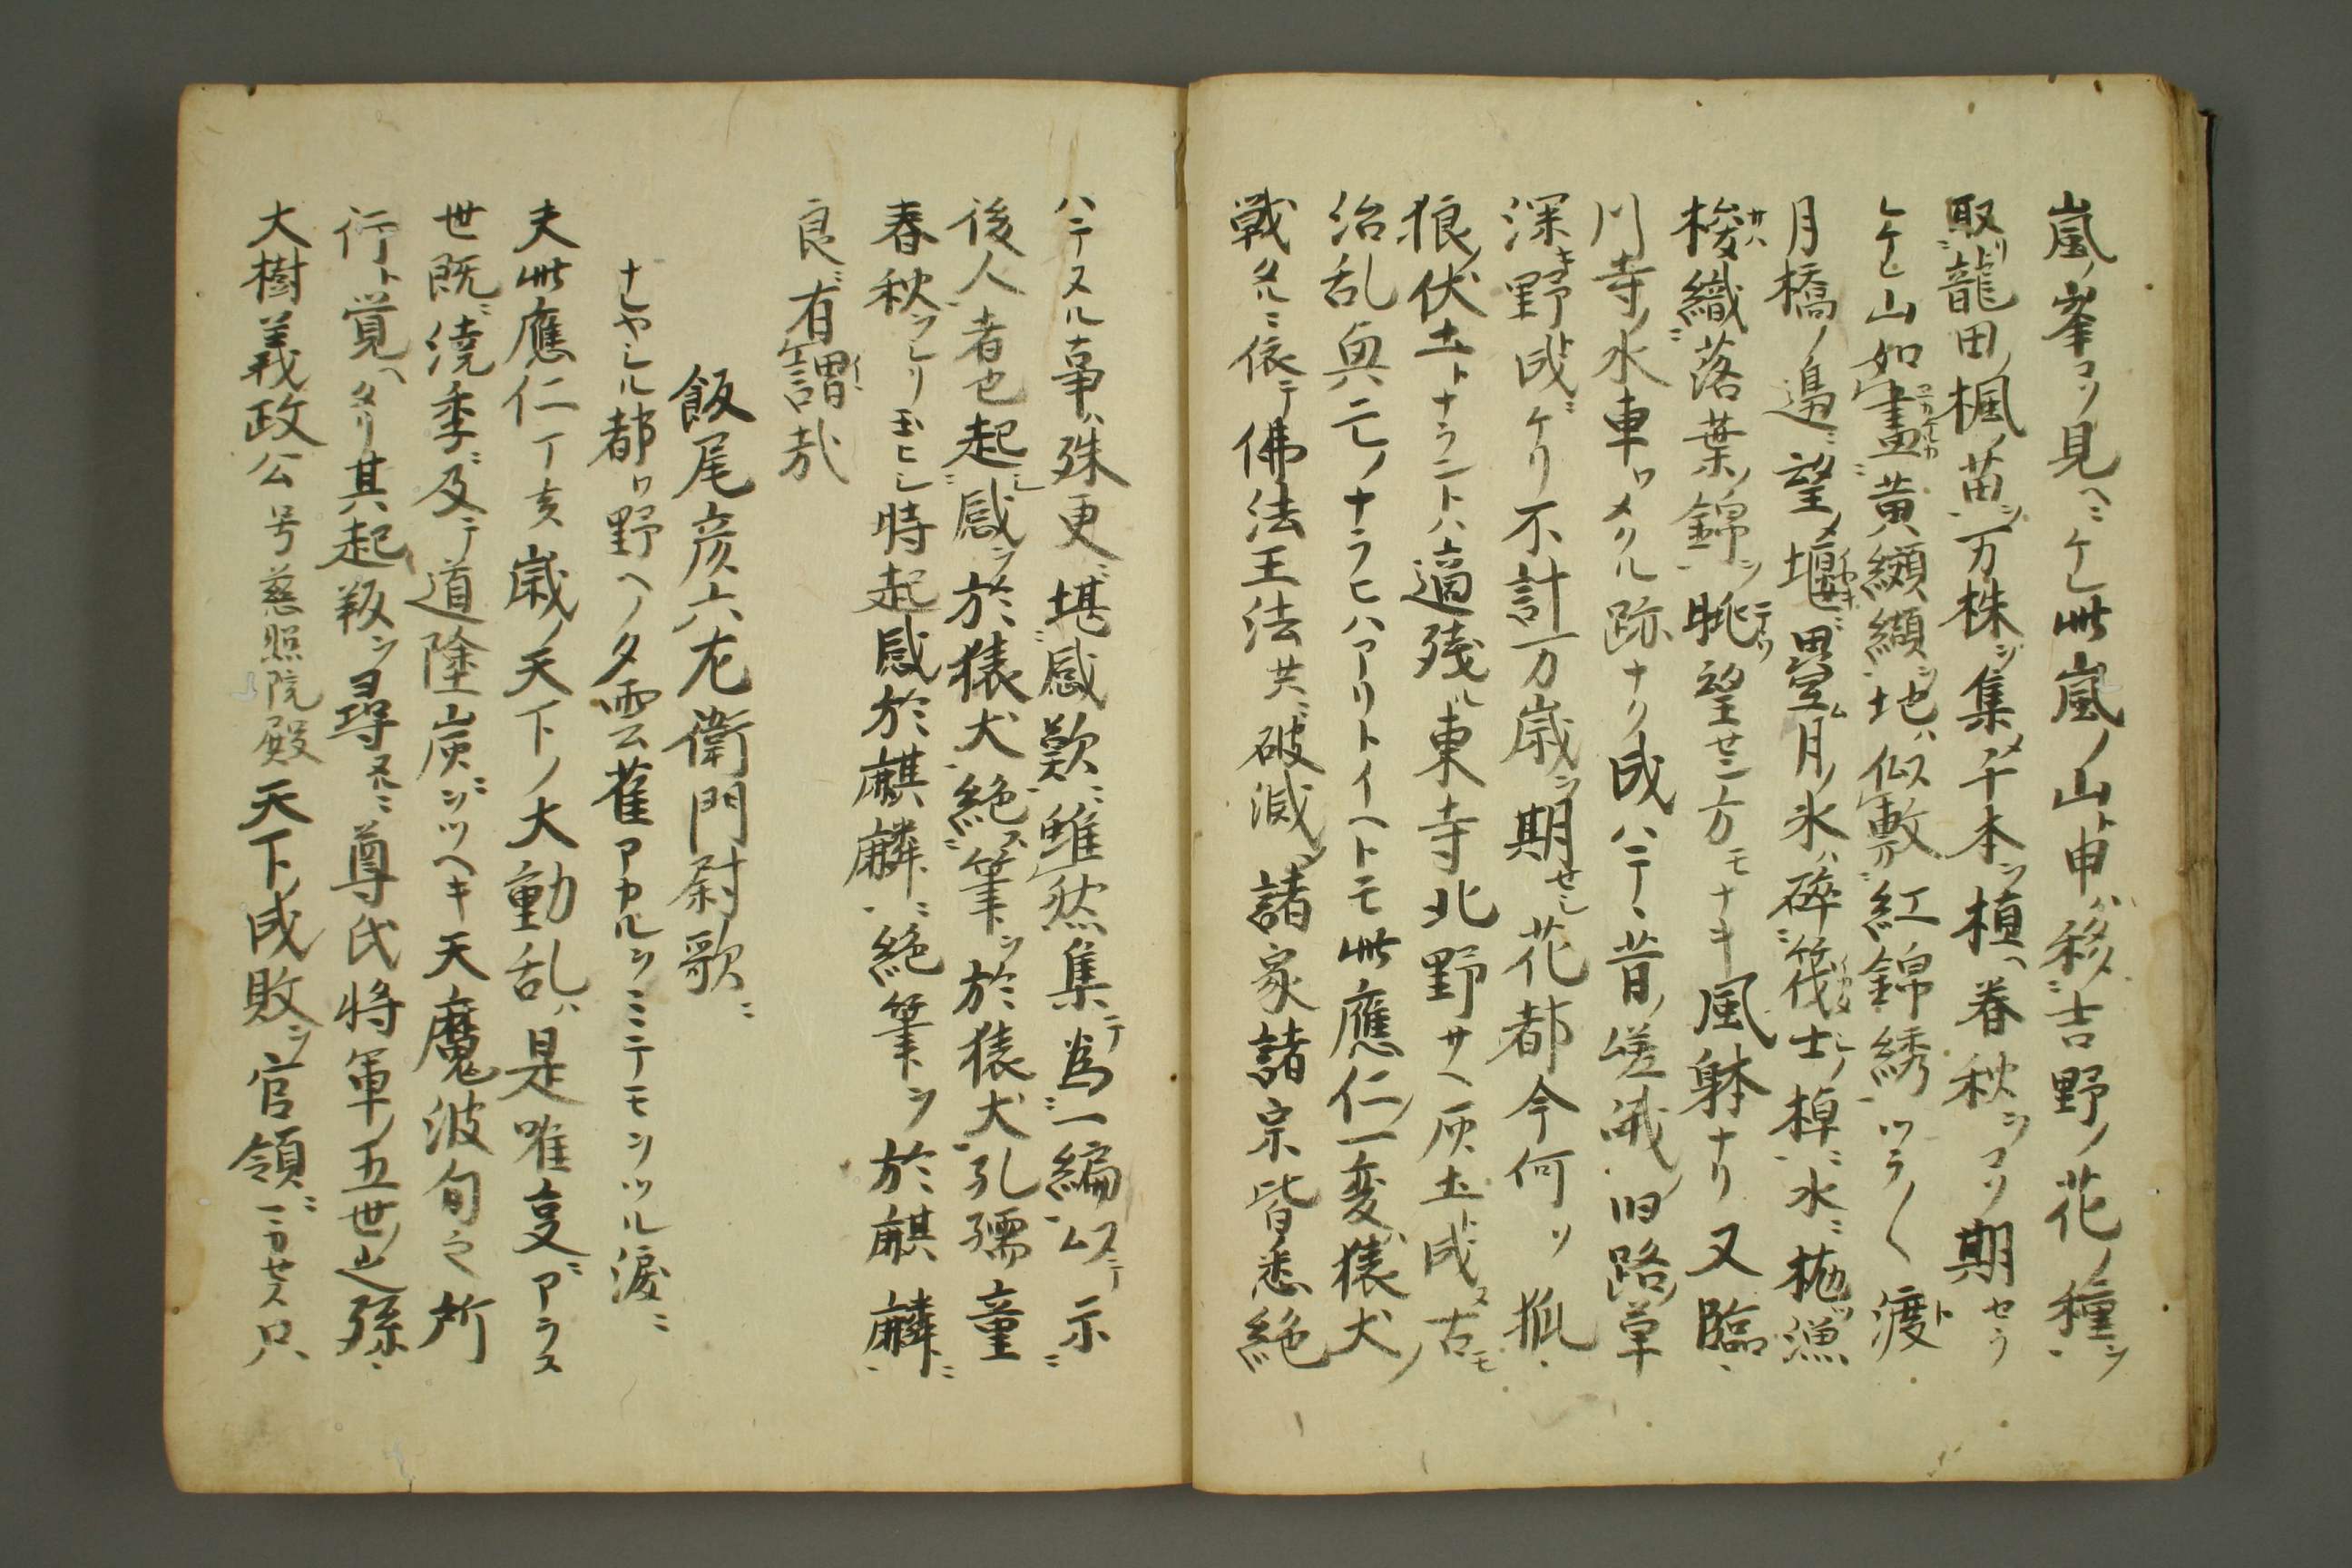 嵐ノ峯コソ見ヘニケレ此嵐ノ山ト申ハ移シ吉野ノ花ノ種ヲ
取リ龍田ノ楓ノ苗ヲ万株ヲ集メ千本ヲ植ヘ春秋ヲコソ期セラ
レケレ山如畫黄纈纐ヲ地ハ似敷ニ紅錦綉ツラ〱渡
月橋ノ邉ニ望メハ堰ニ畳ム月ノ氷ハ碎筏士ノ棹ニ水ニ抛漁
梭ヲ織落葉ノ錦ヲ眺望セン方モナキ風躰ナリ又臨
川寺ノ水車ワメクル跡ナク成ハテヽ昔ノ嵯峨ノ旧路草
深キ野ト成ニケリ不計万歳ヲ期セシ花都今何ソ狐
狼ノ伏土トナラントハ適残ル東寺北野サヘ灰土ト成ヌ古モ
治乱興亡ノナラヒハアリトイヘトモ此應仁ノ一変ハ猿犬ノ
戦タルニ依テ佛法王法共ニ破滅ノ諸家諸宗皆悉絶
ハテヌル事ハ殊更ニ堪感歎ニ雖然集テ為一編ムステ示
後人者也起感ヲ於猿犬絶筆ヲ於猿犬孔孺童
春秋ヲシリ玉ヒシ時起感於麒麟絶筆ヲ於麒麟
良有謂哉
飯尾彦六左衛門尉歌ニ
ナレヤシル都ワ野ヘノ夕雲雀アカルヲミテモヲツル涙ニ
夫此應仁丁亥歳ノ天下ノ大動乱ハ是唯亊ニアラス
世既ニ澆季ニ及テ道塗炭ニヲツヘキ天魔波旬之所
行ト覚ヘタリ其起叛ヲ尋ヌルニ尊氏将軍ノ五世之孫
大樹義政公号慈照院殿天下ノ成敗ヲ官領ニミカセス只